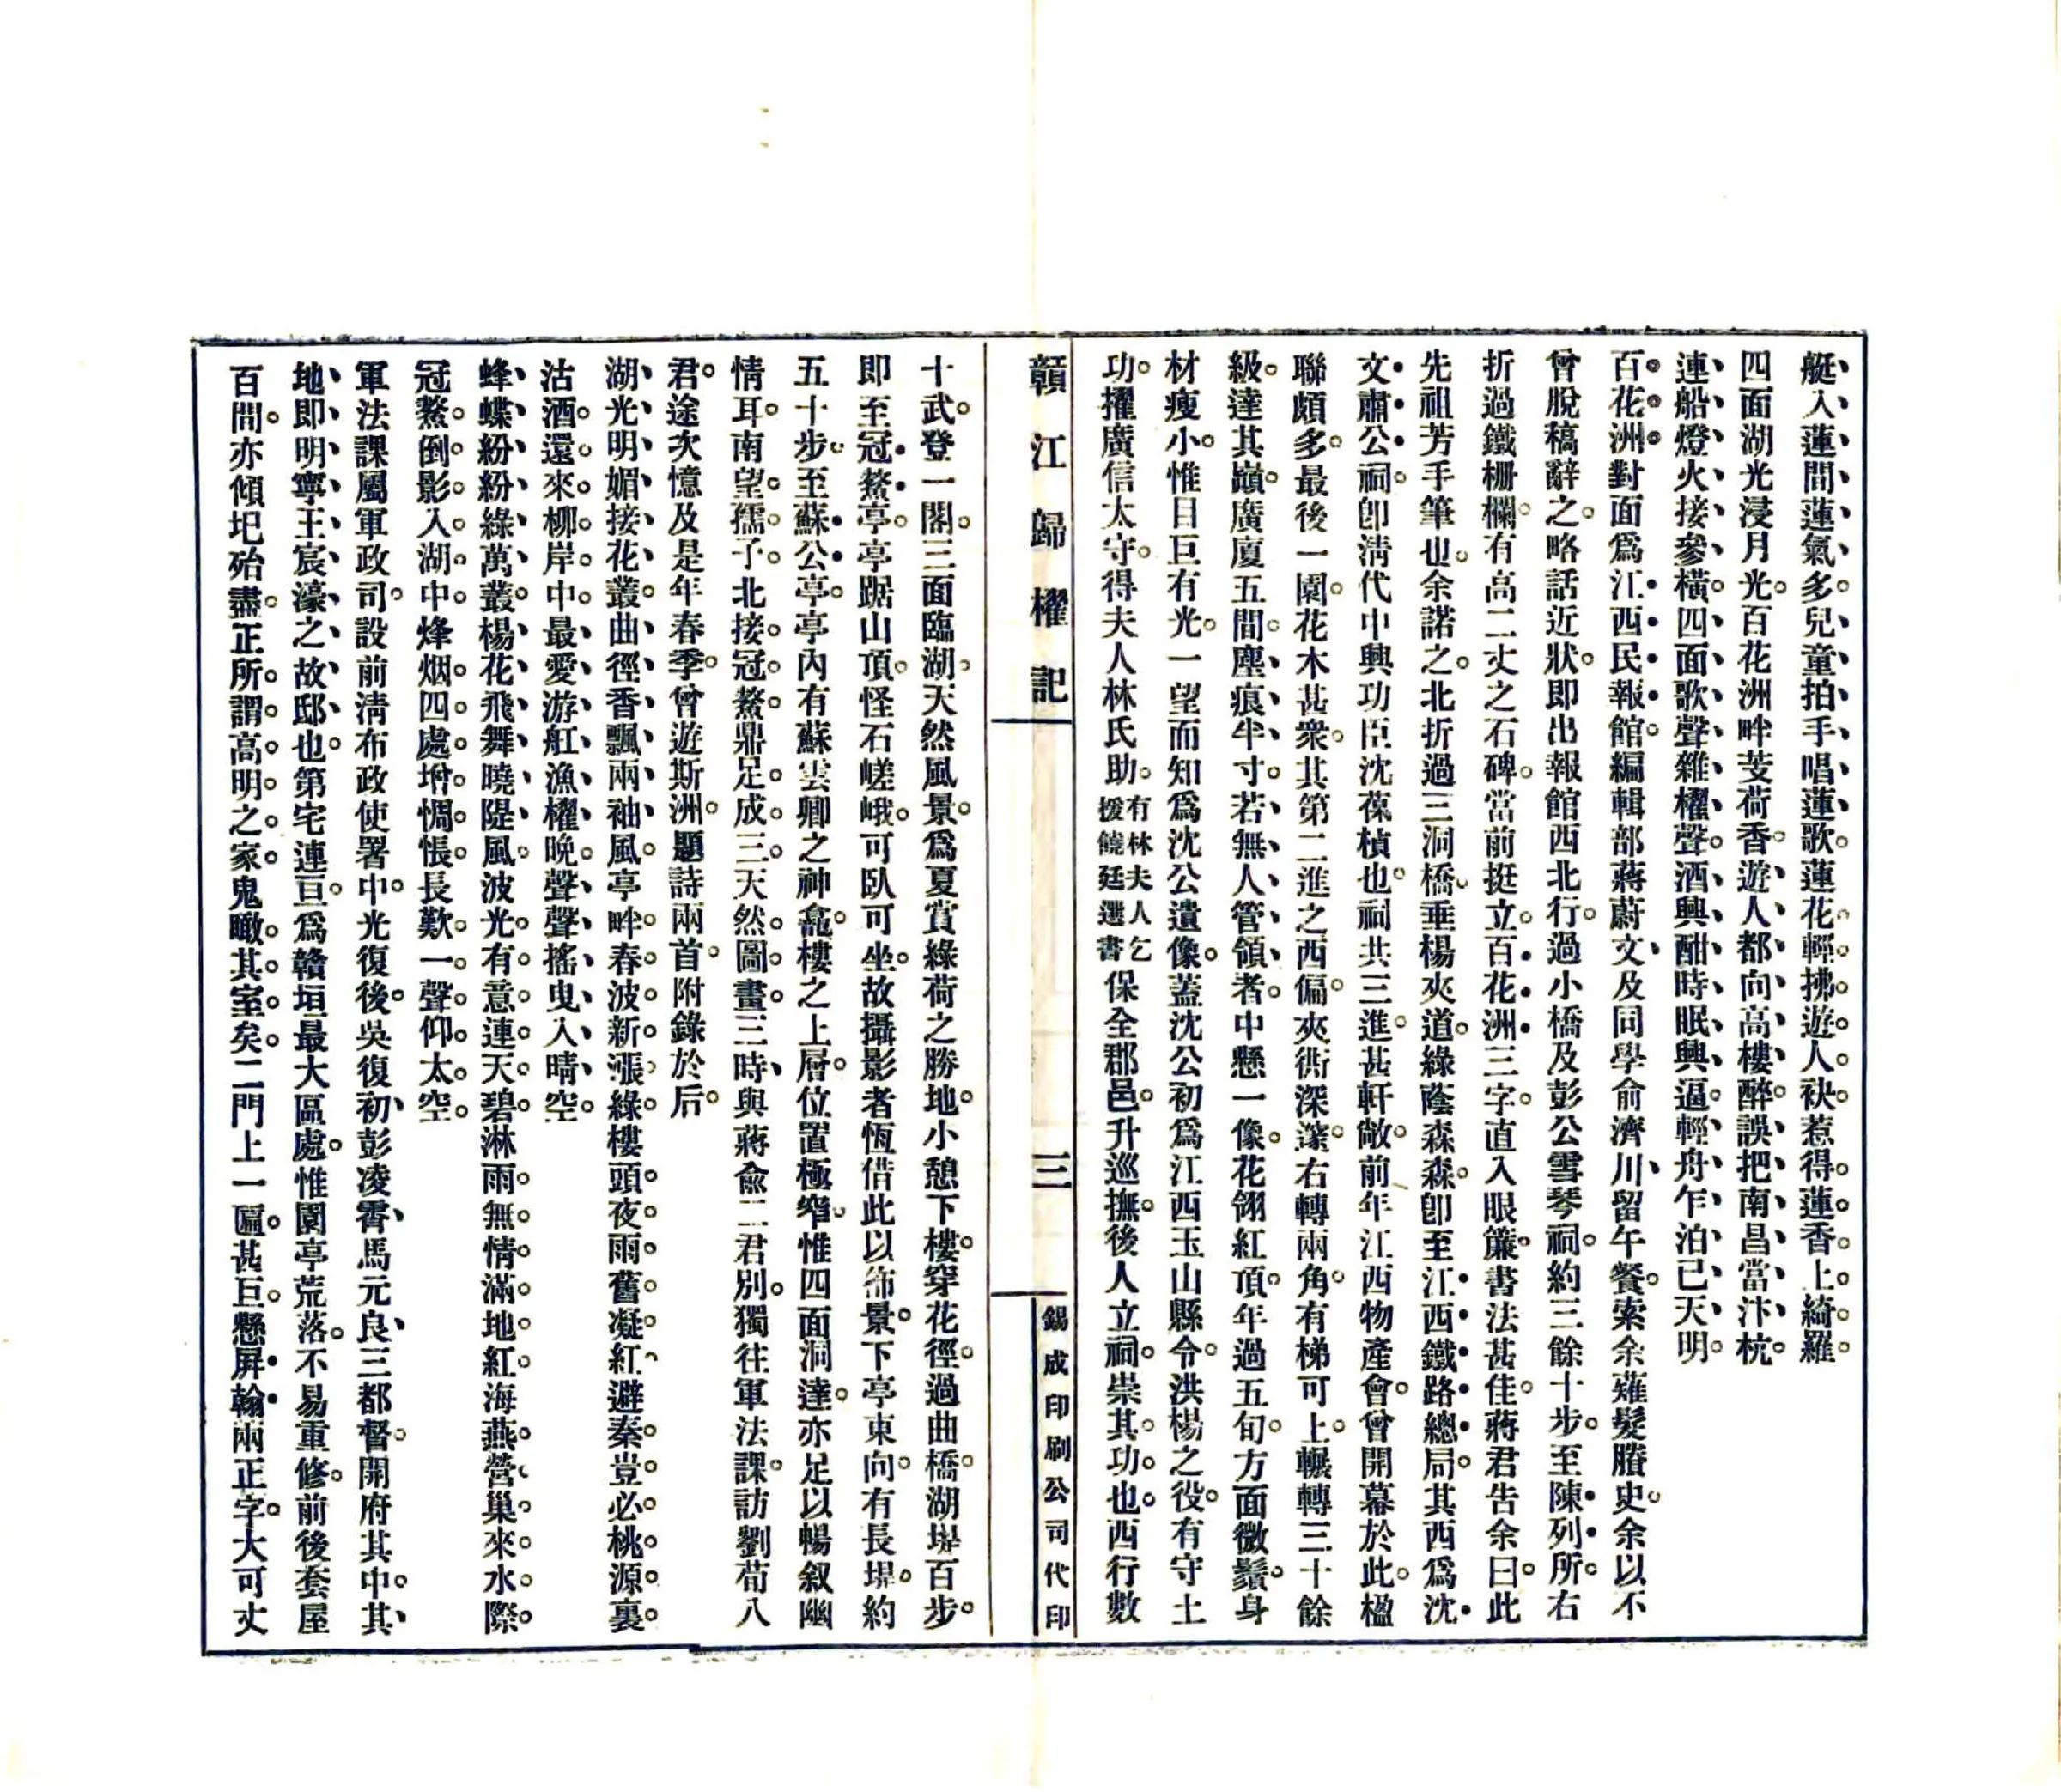 艇入蓮間蓮氣多。兒童拍手唱蓮歌。蓮花輕拂遊人袂。惹得蓮香上綺羅。
四面湖光浸月光。百花洲畔芰荷香。遊人都向高樓醉。誤把南昌當汴杭。
連船燈火接參橫。四面歌聲雜櫂聲。酒興酣時眠興逼。輕舟乍泊已天明。
百花洲對面爲江西民報館。編輯部蔣蔚文、及同學俞濟川、留午餐。索余薙髮賸史。余以不
曾脫稿辭之。略話近狀。即出報館西北行。過小橋及彭公雪琴祠。約三餘十步。至陳列所。右
折過鐵柵欄。有高二丈之石碑。當前挺立。百花洲三字。直入眼簾。書法甚佳。蔣君告余曰。此
先祖芳手筆也。余諾之。北折過三洞橋。垂楊夾道。綠蔭森森。卽至江西鐵路總局。其西爲沈
文肅公祠。卽淸代中興功臣沈葆楨也。祠共三進。甚軒敞。前年江西物產會。曾開幕於此。楹
聯頗多。最後一園。花木甚衆。其第二進之西偏。夾衖深邃。右轉兩角。有梯可上。輾轉三十餘
級。達其巔。廣廈五間。塵痕半寸。若無人管領者。中懸一像。花翎紅頂。年過五旬。方面微鬚。身
材瘦小。惟目巨有光。一望而知爲沈公遺像。蓋沈公初爲江西玉山縣令。洪楊之役。有守土
功。擢廣信太守。得夫人林氏助。有林夫人乞援饒廷選書保全郡邑。升巡撫。後人立祠。崇其功也。西行數
贛江歸櫂記
三
錫成印刷公司代印
十武。登一閣。三面臨湖。天然風景。爲夏賞綠荷之勝地。小憩下樓。穿花徑。過曲橋。湖堤百步。
即至冠鰲亭。亭踞山頂。怪石嵯峨。可臥可坐。故攝影者恆借此以佈景。下亭東向。有長堤。約
五十步。至蘇公亭。亭內有蘇雲卿之神龕。樓之上層。位置極窄。惟四面洞達。亦足以暢叙幽
情耳。南望孺子。北接冠鰲。鼎足成三。天然圖畫。三時、與蔣俞二君別。獨往軍法課。訪劉荀八
君。途次憶及是年春季。曾遊斯洲。題詩兩首。附錄於后。
湖光明媚接花叢。曲徑香飄兩袖風。亭畔春波新漲綠。樓頭夜雨舊凝紅。避秦豈必桃源裏。
沽酒還來柳岸中。最愛游舡漁櫂晚。聲聲搖曳入晴空。
蜂蝶紛紛綠萬叢。楊花飛舞曉隄風。波光有意連天碧。淋雨無情滿地紅。海燕營巢來水際。
冠鰲倒影入湖中。烽烟四處增惆悵。長歎一聲仰太空。
軍法課屬軍政司。設前淸布政使署中。光復後。吳復初、彭凌霄、馬元良、三都督。開府其中。其
地即明寧王宸濠之故邸也。第宅連亘。爲贛垣最大區處。惟園亭荒落。不易重修。前後套屋
百間。亦傾圮殆盡。正所謂高明之家。鬼瞰其室矣。二門上一匾。甚巨。懸屏翰兩正字。大可丈